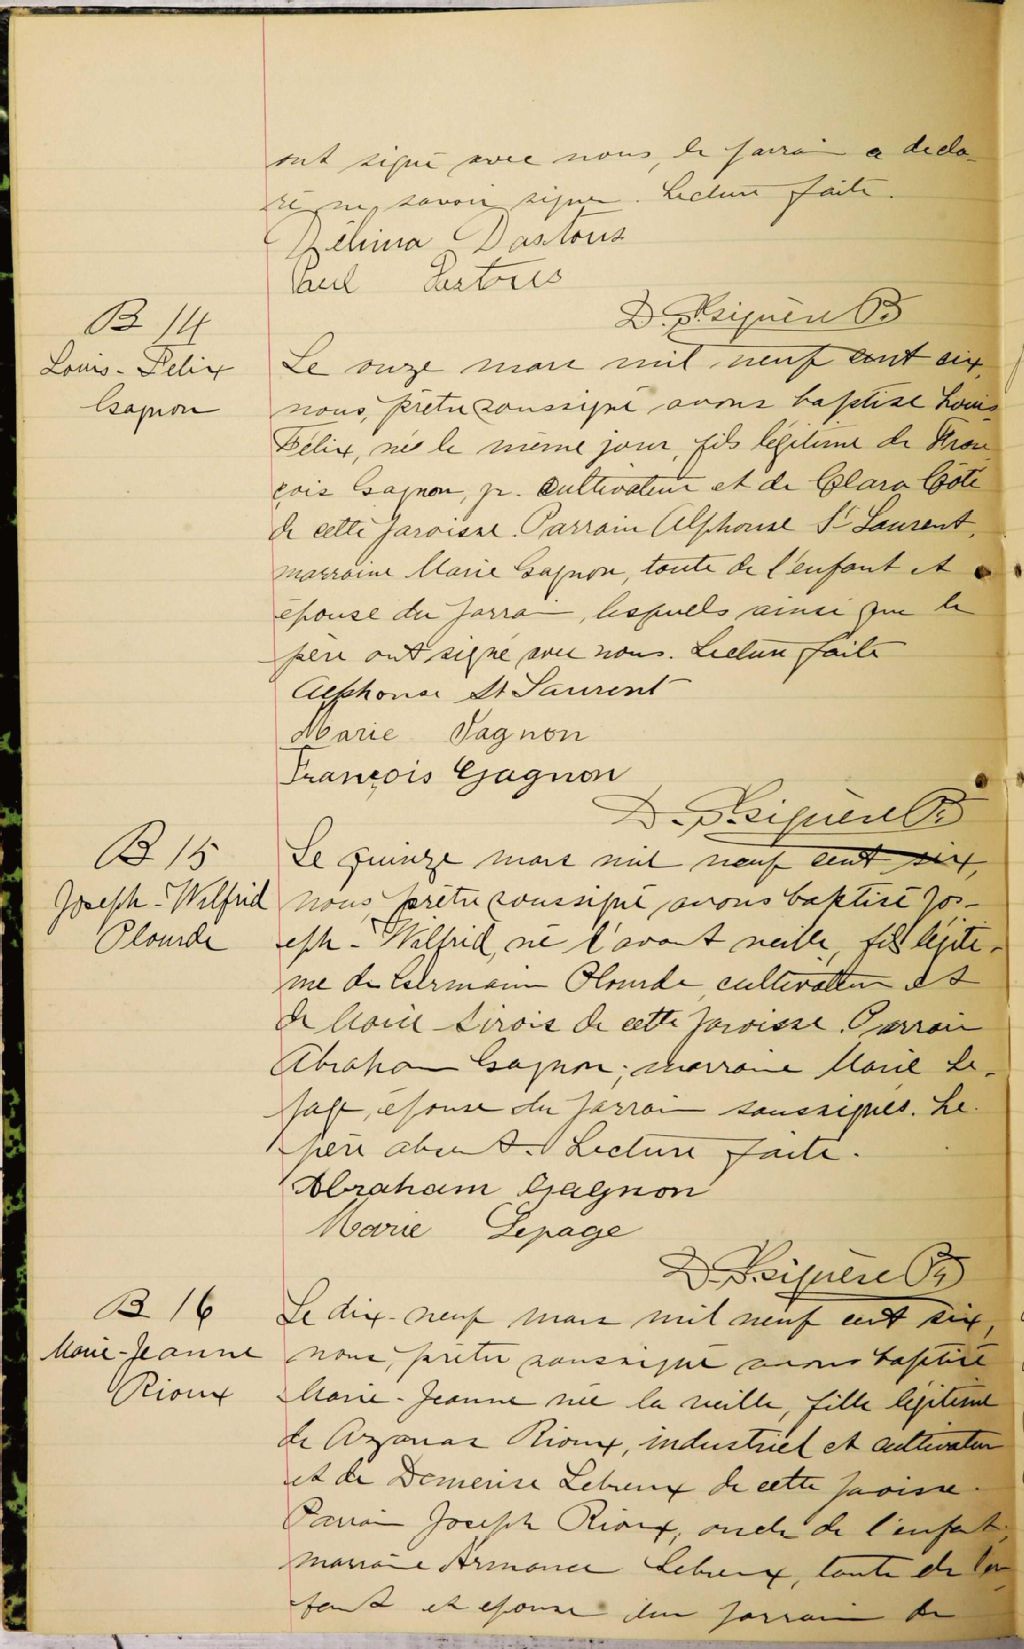 ont signé avec nous, le parrain a décla-
ré ne savoir signer. Lecture faite.
Délima Dastous
Paul Dastous
B 14
Louis-Félix
Gagnon
Le onze mars mil neuf cent six,
nous, prêtre soussigné avons baptisé Louis-
Félix, né le même jour, fils légitime de Fran
çois Gagnon, jr. cultivateur et de Clara Côté
de cette paroisse. Parrain Alphonse St Laurent,
marraine Marie Gagnon, tante de l'enfant et
épouse du parrain, lesquels ainsi que le
père ont signé avec nous. Lecture faite
Alphonse St Laurent
Marie Gagnon
François Gagnon
B 15
Joseph-Wilfrid
Plourde
Le quinze mars mil neuf cent six,
nous, prêtre soussigné avons baptisé Jos-
eph-Wilfrid, né l'avant veille, fils légiti-
me de Germain Plourde, cultivateur et
de Marie Sirois de cette paroisse. Parrain
Abraham Gagnon; marraine Marie Le-
page, épouse du parrain soussignés. Le
père absent. Lecture faite.
Abraham Gagnon
Marie Lepage
B 16
Marie-Jeanne
Rioux
Le dix-neuf mars mil neuf cent six,
nous, prêtre soussigné avons baptisé
Marie-Jeanne née la veille, fille légitime
de Rioux, industriel et cultivateur
et de Demerise Lebreux de cette paroisse.
Parrain Joseph Rioux, oncle de l'enfant,
marraine Armance Lebreux, tante de l'en
fant et épouse du parrain de